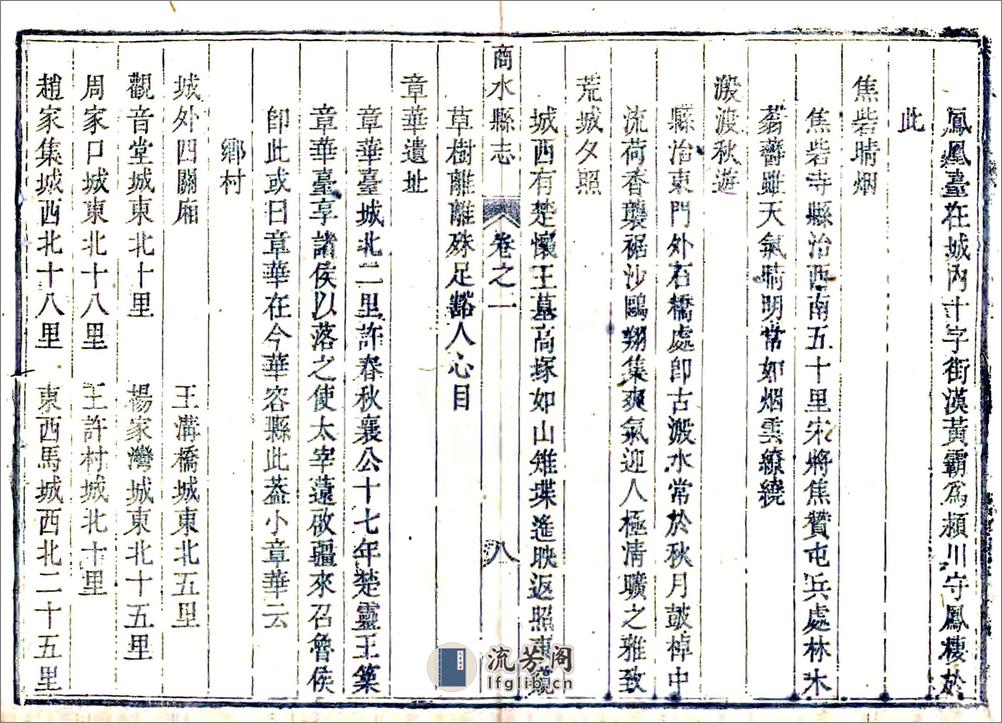 鳳凰臺在城內十字街漢黃霸爲潁川守鳳棲於
此
焦砦晴烟
焦砦寺縣治西南五十里宋將焦贊屯兵處林木
蓊薺雖天氣晴明常如烟雲繚繞
溵渡秋遊
縣治東門外石橋處卽古溵水常於秋月鼓棹中
流荷香襲裾沙鷗翔集爽氣迎人極淸曠之雅致
荒城夕照
城西有楚懷王墓高塚如山雉堞遙映返照東
草樹離離殊足豁人心目
商水縣志 卷之一 八
章華遺址
章華臺城北二里許春秋襄公十七年楚靈王築
章華臺享諸侯以落之使太宰薳啟疆來召魯侯
卽此或曰章華在今華容縣此葢小章華云
鄉村
城外四關廂 王溝橋城東北五里
觀音堂城東北十里 楊家灣城東北十五里
周家口城東北十八里 王許村城北十里
趙家集城西北十八里 東西馬城西北二十五里
流芳阁
lfglib.cn